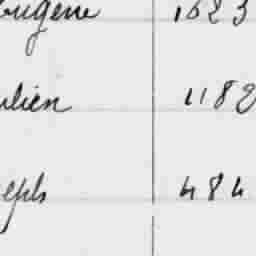 eugene 1623
ulien 1182
484